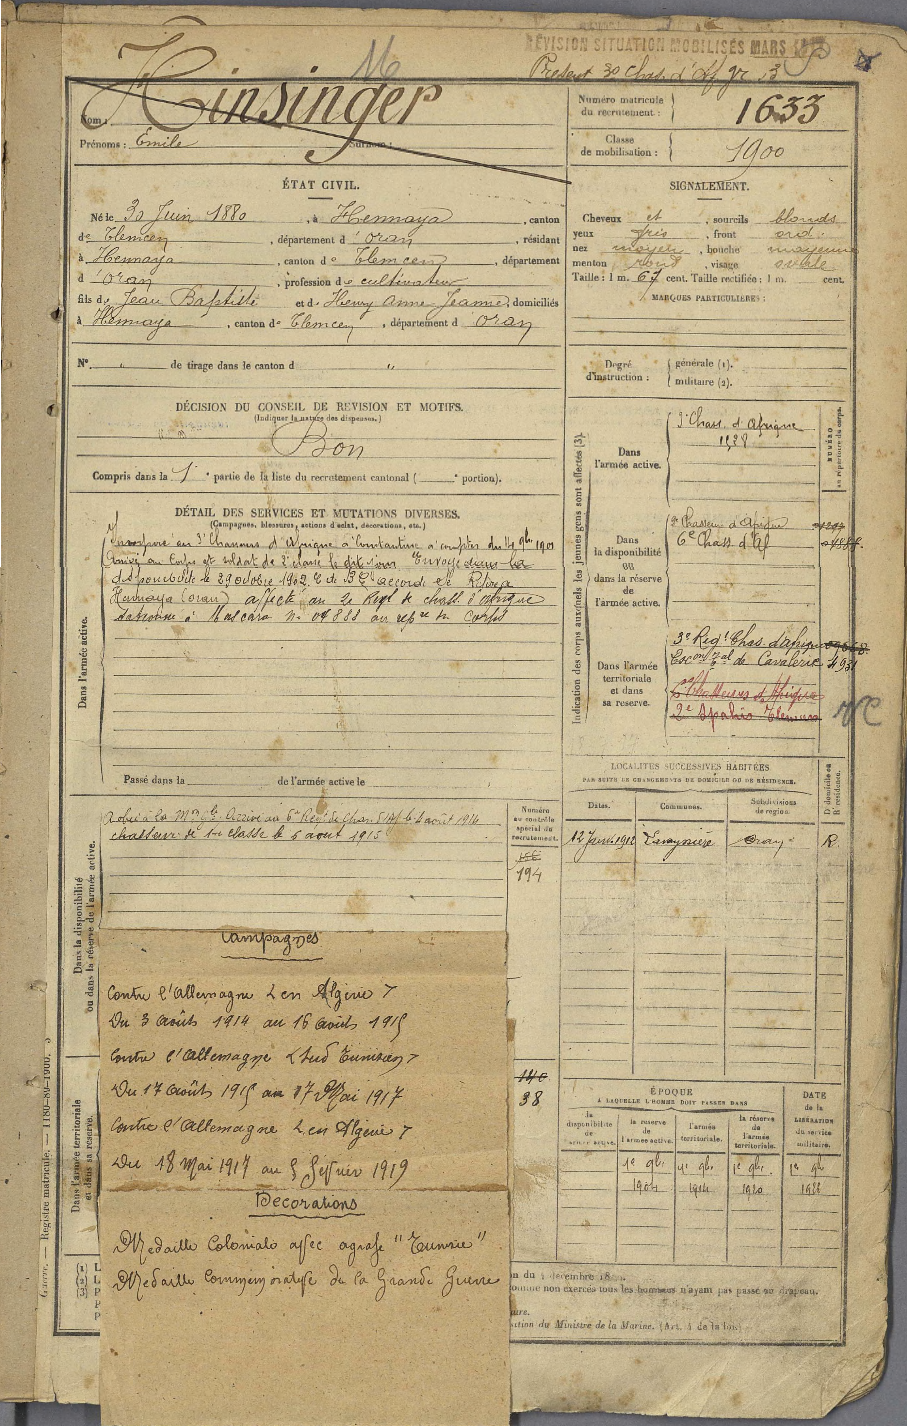 RÉVISION SITUATION MOBILISÉS MARS
Present 3e Chas. d'Af
16
Hinsinger
Nom :
Prénoms : Émile Surnom :
Numéro matricule
du recrutement : 1633
Classe
de mobilisation : 1900
ÉTAT CIVIL.
Né le 30 Juin 1880, à Hennaya, canton
de Tlemcen, département d'Oran, résidant
à Hennaya, canton de Tlemcen, département
d Oran, profession de cultivateur
fils de Jean Baptiste et de Henry Anne Jeanne, domiciliés
à Hennaya, canton de Tlemcen, département d Oran
N° " de tirage dans le canton d "
SIGNALEMENT.
Cheveux et, sourcils blonds
yeux gris, front ord.
nez moyen, bouche moyenne
menton rond, visage ovale
Taille : 1 m. 67 cent. Taille rectifiée : 1 m. cent.
MARQUES PARTICULIÈRES :
Degré
d'instruction :
générale (1).
militaire (2).
DÉCISION DU CONSEIL DE REVISION ET MOTIFS.
(Indiquer la nature des dispenses.)
Bon
Compris dans la 1e partie de la liste du recrutement cantonal ( e portion).
DÉTAIL DES SERVICES ET MUTATIONS DIVERSES.
(Campagnes, blessures, actions d'éclat, décorations, etc.)
Dans l'armée active.
Incorporé au 3e Chasseurs d'Afrique à Constantine à compter du 14 9bre 1901
Arrivé au Corps et soldat de 2e classe le dit jour Envoyé dans la
disponibilité le 29 octobre 1902. C de B C accordé Se Retire à
Hennaya (Oran) affecté au 2e Régt de chass. d'Afrique
stationné à Mascara No 04888 au rep re du Corps
Passé dans la de l'armée active le
Indication des corps auxquels les jeunes gens sont affectés (3).
NUMÉRO
au répertoire du corps.
Dans
l'armée active.
3e Chass. d'Afrique
1528
Dans
la disponibilité
ou
dans la réserve
de
l'armée active.
2e Chasseurs d'Afrique
6e Chass d'Af
Dans l'armée
territoriale
et dans
sa reserve.
3e Régt Chas. d'Afrique
Esc on T al de Cavalerie 4931
6e Chasseurs d'Afrique
2e Spahis Tlemcen
LOCALITÉS SUCCESSIVES HABITÉES
PAR SUITE DE CHANGEMENTS DE DOMICILE OU DE RÉSIDENCE.
Dates. Communes. Subdivisions de région. D. domicile ou R. résidence.
12 Janv. 1912 Oran R.
Dans la disponibilité
ou dans la réserve de l'armée active.
Numéro
au contrôle
spécial du
recrutement.
194
Rappelé à la Mon Gle Arrivé au 6e Régt de Chas. d'Af le 4 août 1914
chasseur de 1re classe le 5 août 1915
Campagnes
Contre l'Allemagne (en Algérie)
Du 3 Août 1914 au 16 Août 1915
Contre l'Allemagne (Sud Tunisien)
Du 17 Août 1915 au 17 Mai 1917
Contre l'Allemagne (en Algérie)
Du 18 Mai 1917 au 5 Fevrier 1919
Decorations
Medaille Coloniale affec agrafe "Tunisie"
Medaille Commemorative de la Grande Guerre
Dans l'armée territoriale
et dans sa reserve.
38
ÉPOQUE
A LAQUELLE L'HOMME DOIT PASSER DANS
DATE
de la
LIBÉRATION
du service
militaire.
la disponibilité de l'armée active.
la reserve de l'armée active.
l'armée territoriale.
la réserve de l'armée territoriale.
1e 9bre 1904
1e 9bre 1914
1e 9bre 1920
1e 9bre 1926
Guerre. — Registre matricule. — 1180-89-1900.